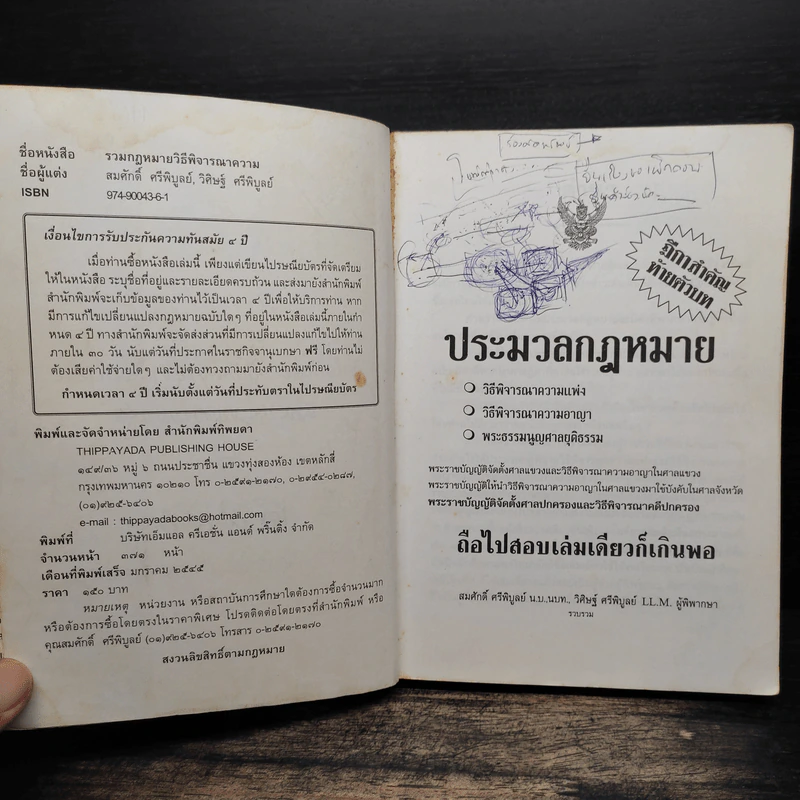 ชื่อหนังสือ รวมกฎหมายวิธีพิจารณาความ
ชื่อผู้แต่ง สมศักดิ์ ศรีพิบูลย์, วิศิษฐ์ ศรีพิบูลย์
ISBN 974-90043-6-1
เงื่อนไขการรับประกันความทันสมัย ๔ ปี
เมื่อท่านซื้อหนังสือเล่มนี้ เพียงแต่เขียนไปรษณียบัตรที่จัดเตรียม
ให้ในหนังสือ ระบุชื่อที่อยู่และรายละเอียดครบถ้วน และส่งมายังสำนักพิมพ์
สำนักพิมพ์จะเก็บข้อมูลของท่านไว้เป็นเวลา ๔ ปีเพื่อให้บริการท่าน หาก
มีการแก้ไขเปลี่ยนแปลงกฎหมายฉบับใดๆ ที่อยู่ในหนังสือเล่มนี้ภายในกำ
หนด ๔ ปี ทางสำนักพิมพ์จะจัดส่งส่วนที่มีการเปลี่ยนแปลงแก้ไขไปให้ท่าน
ภายใน ๓๐ วัน นับแต่วันที่ประกาศในราชกิจจานุเบกษา ฟรี โดยท่านไม่
ต้องเสียค่าใช้จ่ายใดๆ และไม่ต้องทวงถามมายังสำนักพิมพ์ก่อน
กำหนดเวลา ๔ ปี เริ่มนับตั้งแต่วันที่ประทับตราในไปรษณียบัตร
พิมพ์และจัดจำหน่ายโดย สำนักพิมพ์ทิพยดา
THIPPAYADA PUBLISHING HOUSE
๑๔๙/๓๖ หมู่ ๖ ถนนประชาชื่น แขวงทุ่งสองห้อง เขตหลักสี่
กรุงเทพมหานคร ๑๐๒๑๐ โทร ๐-๒๕๙๑-๒๑๗๐, ๐-๒๙๕๔-๐๒๘๗,
(๐๑)๙๒๕-๖๔๐๖
e-mail : thippayadabooks@hotmail.com
พิมพ์ที่ บริษัทเอ็มแอล ครีเอชั่น แอนด์ พริ๊นติ้ง จำกัด
จำนวนหน้า ๓๗๑ หน้า
เดือนที่พิมพ์เสร็จ มกราคม ๒๕๔๕
ราคา ๑๕๐ บาท
หมายเหตุ หน่วยงาน หรือสถาบันการศึกษาใดต้องการซื้อจำนวนมาก
หรือต้องการซื้อโดยตรงในราคาพิเศษ โปรดติดต่อโดยตรงที่สำนักพิมพ์ หรือ
คุณสมศักดิ์ ศรีพิบูลย์ (๐๑)๙๒๕-๖๔๐๖ โทรสาร ๐-๒๕๙๑-๒๑๗๐
สงวนลิขสิทธิ์ตามกฎหมาย
ฎีกาสำคัญ
ท้ายตัวบท
ประมวลกฎหมาย
วิธีพิจารณาความแพ่ง
วิธีพิจารณาความอาญา
พระธรรมนูญศาลยุติธรรม
พระราชบัญญัติจัดตั้งศาลแขวงและวิธีพิจารณาความอาญาในศาลแขวง
พระราชบัญญัติให้นำวิธีพิจารณาความอาญาในศาลแขวงมาใช้บังคับในศาลจังหวัด
พระราชบัญญัติจัดตั้งศาลปกครองและวิธีพิจารณาคดีปกครอง
ถือไปสอบเล่มเดียวก็เกินพอ
สมศักดิ์ ศรีพิบูลย์ น.บ.,นบท., วิศิษฐ์ ศรีพิบูลย์ LL.M. ผู้พิพากษา
รวบรวม